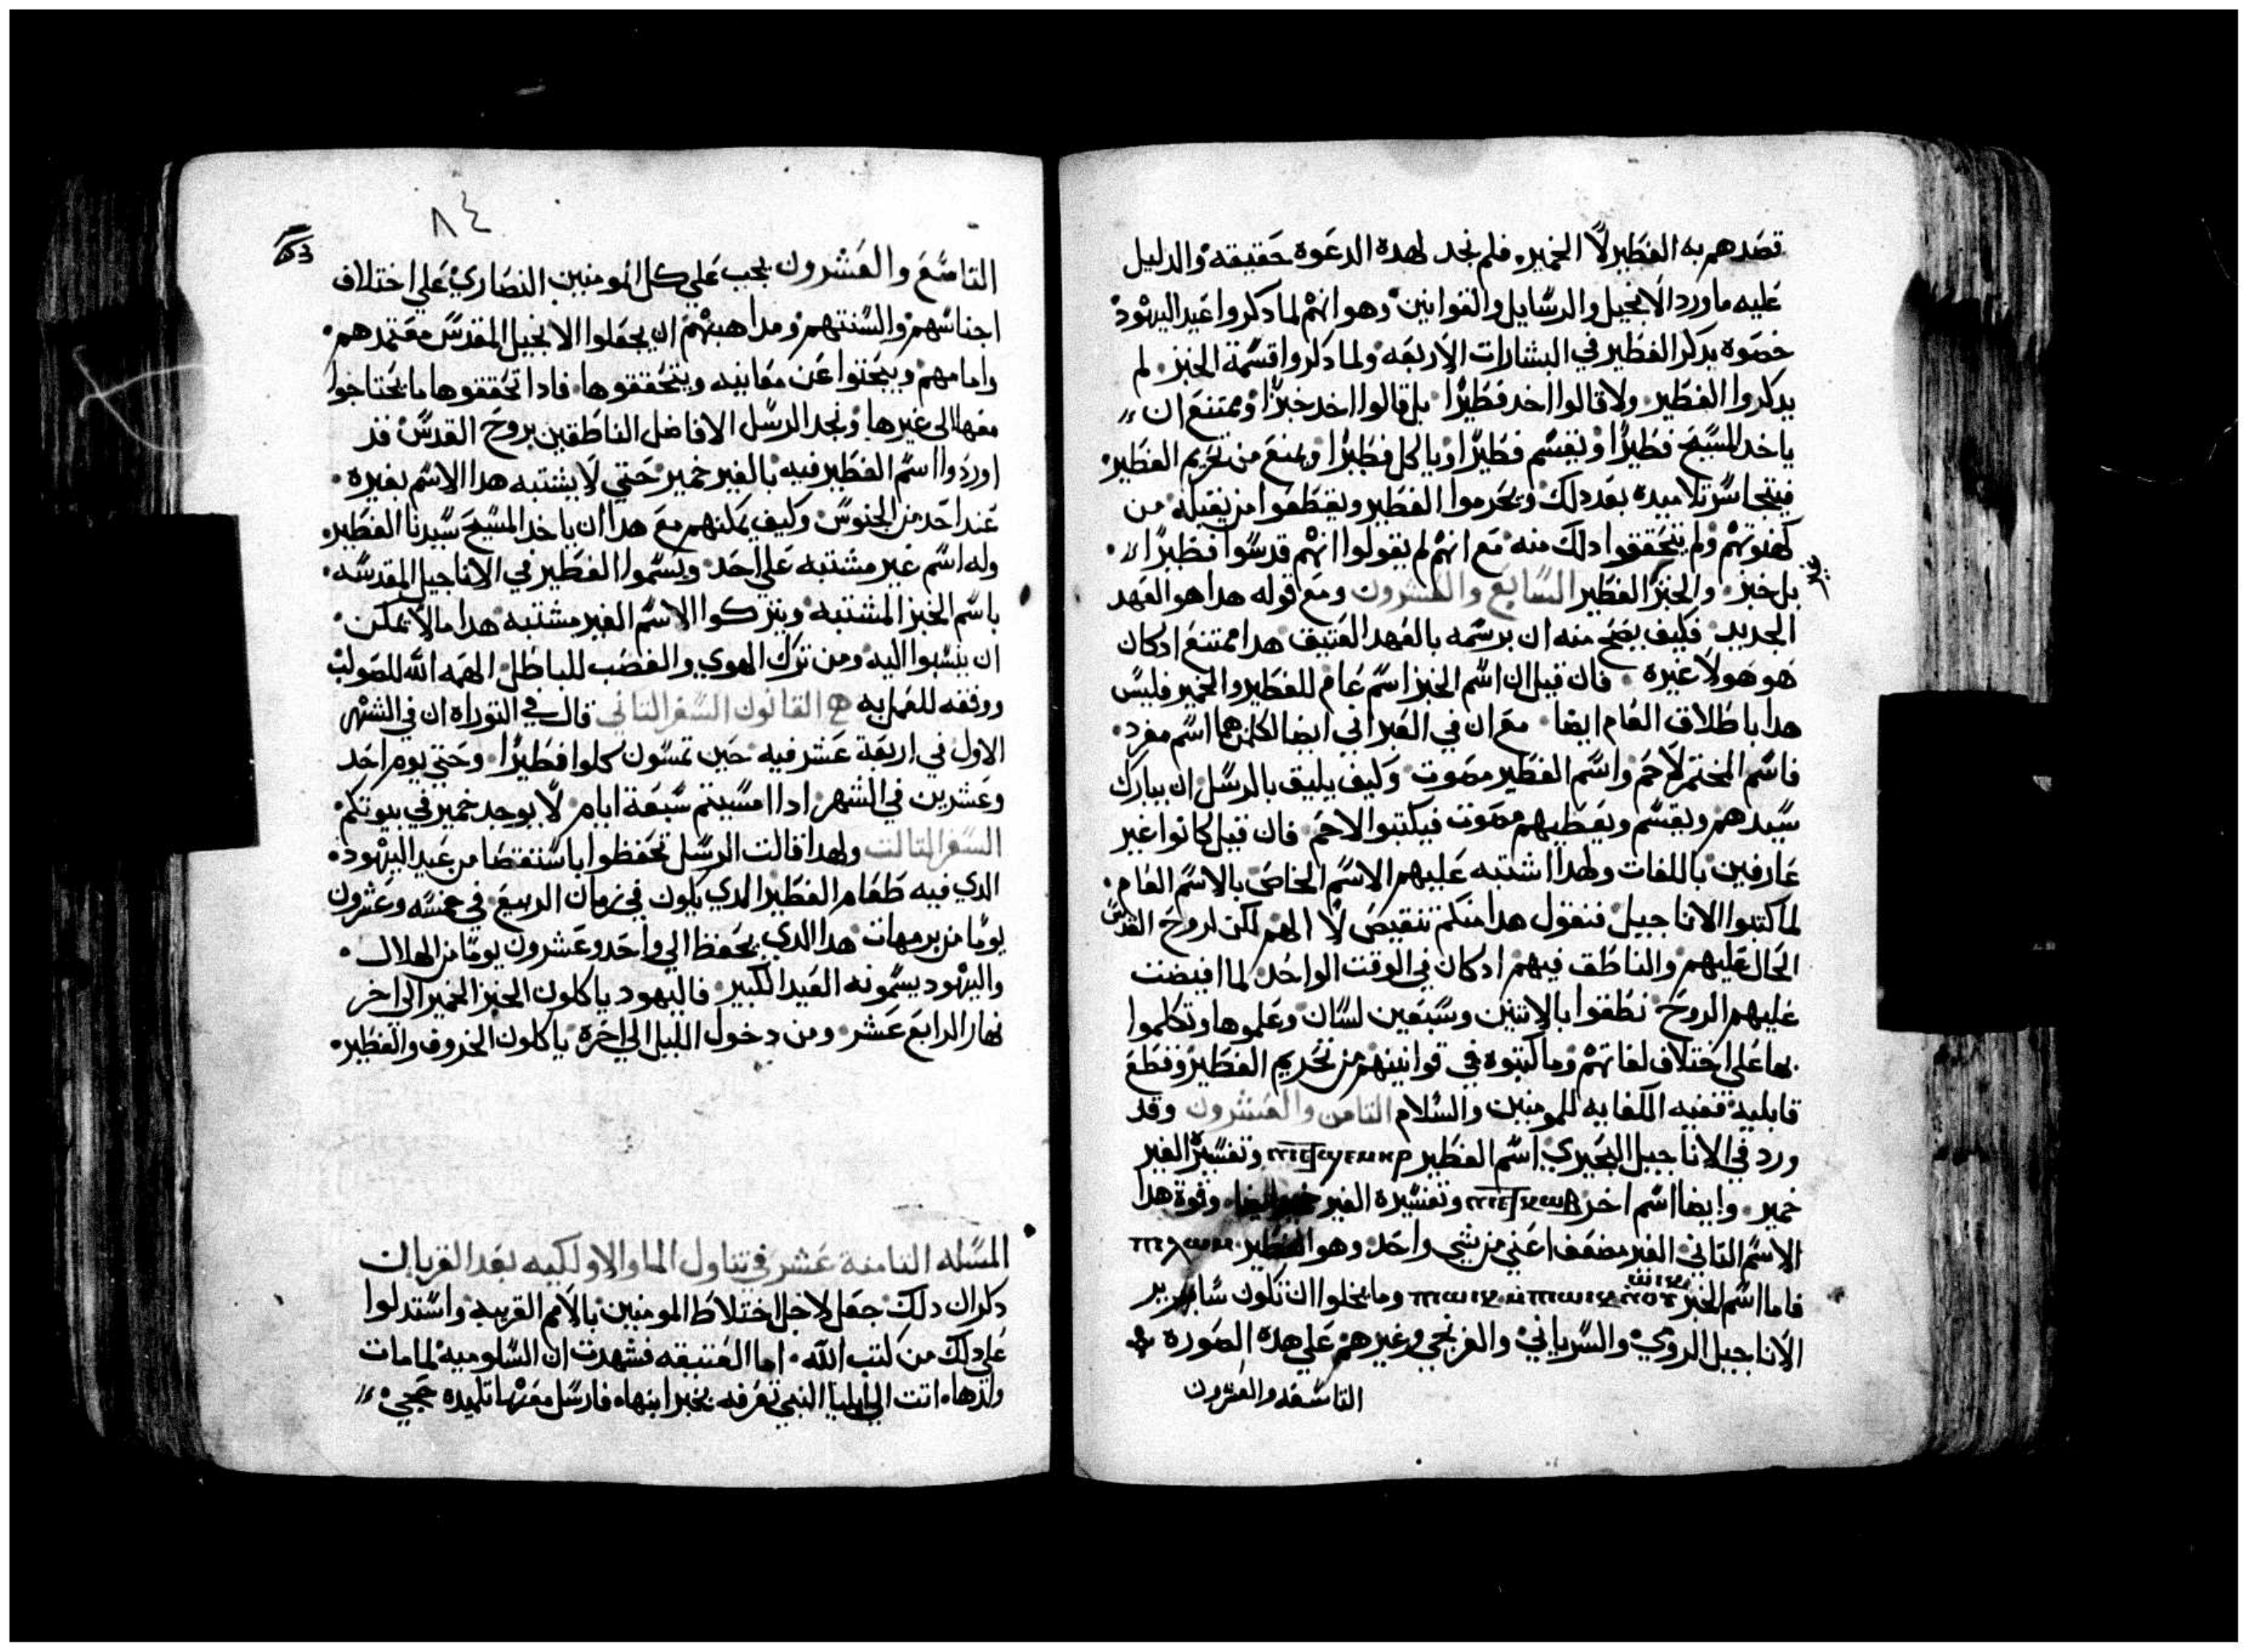 قصدهم به الفطير لا الخمير. فلم نجد لهده الدعوة حقيقه والدليل
عليه ما ورد الانجيل والرسايل والقوانين وهو انهم لما دكروا عيد اليهود
خصوه بدكر الفطير في البشارات الاربعه ولما دكروا قسمة الخبز. لم
يدكروا الفطير ولا قالوا اخد فطيرًا بل قالوا اخد خبزًا وممتنع ان
ياخد المسيح فطيرًا ويقسم فطيرًا وياكل فطيرًا ويمنع من تحريم الفطير.
فيتجاسر تلاميده بعد دلك ويحرموا الفطير ويقطعوا من يقبله من
كهنوتهم ولم يتحققوا دلك منه مع انهم لم يقولوا انهم قدسوا فطيرًا.
بل خبز. والخبز الفطير السابع والعشرون ومع قوله هدا هو العهد
الجديد فكيف يصح منه ان يرسمه بالعهد العتيق هدا ممتنع ادكان
هو هو لا غيره. فان قيل ان اسم الخبز اسم عام للفطير والخمير فليس
هدا باطلاق العام ايضا. مع ان في العبراني ايضا لكل منهما اسم مفرد.
فاسم المختمر لاحم واسم الفطير مصوت وكيف يليق بالرسل ان يبارك
سيدهم ويقسم ويعطيهم مصوت فيكتبوا لاحم فان قيل كانوا غير
عارفين باللغات ولهدا اشتبه عليهم الاسم الخاص بالاسم العام.
لما كتبوا الاناجيل فنقول هدا منكم تنقيص لا لهم لكن لروح القدس
الحال عليهم والناطق فيهم ادكان في الوقت الواحد لما افيضت
عليهم الروح نطقوا بالاتنين وسبعين لسان وعلموها وتكلموا
بها علي اختلاف لغاتهم وما كتبوه في قوانينهم من تحريم الفطير وقطع
قابليه ففيه الكفايه للمومنين والسلام التامن والعشرون وقد
ورد في الاناجيل البحيري اسم الفطير وتفسيره الغير
خمير. وايضا اسم اخر وتفسيره الغير وقوة هدا
الاسم التاني الغير مضعف اعني من شي واحد وهو الفطير
فاما اسم الخبز وما يخلوا ان تكون ساير
الاناجيل الرومي والسرياني والفرنجي وغيرهم علي هده الصورة
التاسعه والعشرون
٨٤
التاسع والعشرون يجب علي كل المومنين النصاري علي اختلاف
اجناسهم والسنتهم ومداهبهم ان يجعلوا الانجيل المقدس معتمدهم.
وامامهم ويبحتوا عن معانيه ويتحققوها. فادا تحققوها ما يحتاجوا
معها الي غيرها ونجد الرسل الافاضل الناطقين بروح القدس قد
اوردوا اسم الفطير فيه بالغير خمير حتي لا يشتبه هدا الاسم بغيره.
عند احد من الجنوس وكيف يمكنهم مع هدا ان ياخد المسيح سيدنا الفطير
وله اسم غير مشتبه علي احد ويسموا الفطير في الاناجيل المقدسه.
باسم الخبز المشتبه ويتركوا الاسم الغير مشتبه هدا ما لا يمكن.
ان ينسبوا اليه ومن ترك الهوي والغضب للباطل الهمه الله للصواب
ووفقه للعمل به القانون السفر التاني قال في التوراه ان في الشهر
الاول في اربعة عشر فيه حين تمسون كلوا فطيرًا وحتي يوم احد
وعشرين في الشهر ادا امسيتم سبعة ايام لا يوجد خمير في بيوتكم.
السفر التالت ولهدا قالت الرسل تحفظوا باستقصا من عيد اليهود.
الدي فيه طعام الفطير الدي يكون في زمان الربيع في خمسه وعشرون
يومًا من برمهات هدا الدي يحفظ الي واحد وعشرون يومًا من الهلال.
واليهود يسمونه العيد الكبير فاليهود ياكلون الخبز الخمير الي اخر
نهار الرابع عشر ومن دخول الليل الي اخره ياكلون الخروف والفطير.
المسله التامنة عشر في تناول الما والاولكيه بعد القربان
دكر ان دلك جعل لاجل اختلاط المومنين بالامم الغريبه واستدلوا
علي دلك من كتب الله. اما العتيقه فشهدت ان السلوميه لما مات
ولدها اتت الي ايليا النبي تعرفه بخبر ابنها فارسل معها تلميده جحجي